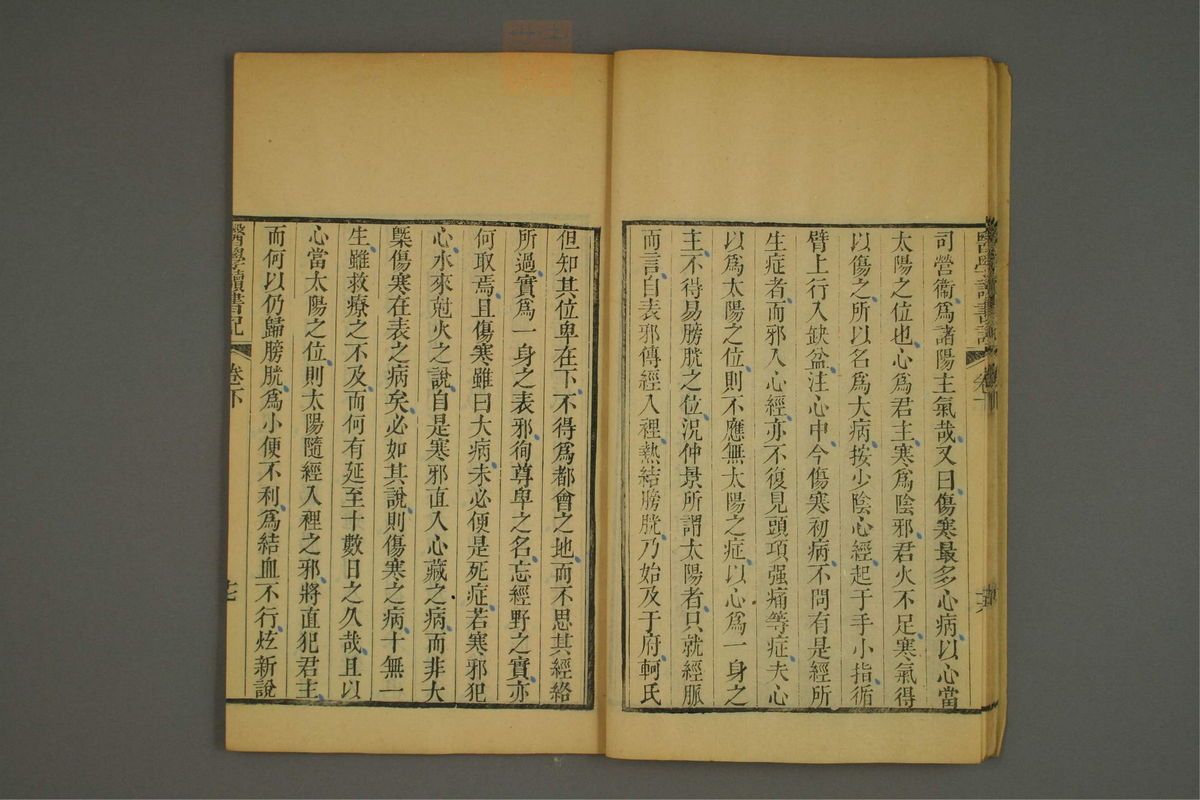 司營衞爲諸陽主氣哉又曰傷寒最多心病以心當
太陽之位也心爲君主寒爲陰邪君火不足寒氣得
以傷之所以名爲大病按少陰心經起于手小指循
臂上行入缺盆注心中今傷寒初病不問有是經所
生症者而邪入心經亦不復見頭項强痛等症夫心
以爲太陽之位則不應無太陽之症以心爲一身之
主不得易膀胱之位況仲景所謂太陽者只就經脈
而言自表邪傳經入裡熱結膀胱乃始及于府軻氏
但知其位卑在下不得爲都會之地而不思其經絡
所過實爲一身之表邪徇尊卑之名忘經野之實亦
何取焉且傷寒雖曰大病未必便是死症若寒邪犯
心水來尅火之說自是寒邪直入心藏之病而非大
槩傷寒在表之病矣必如其說則傷寒之病十無一
生雖救療之不及而何有延至十數日之久哉且以
心當太陽之位則太陽隨經入裡之邪將直犯君主
而何以仍歸膀胱爲小便不利爲結血不行炫新說
醫學讀書記
卷下